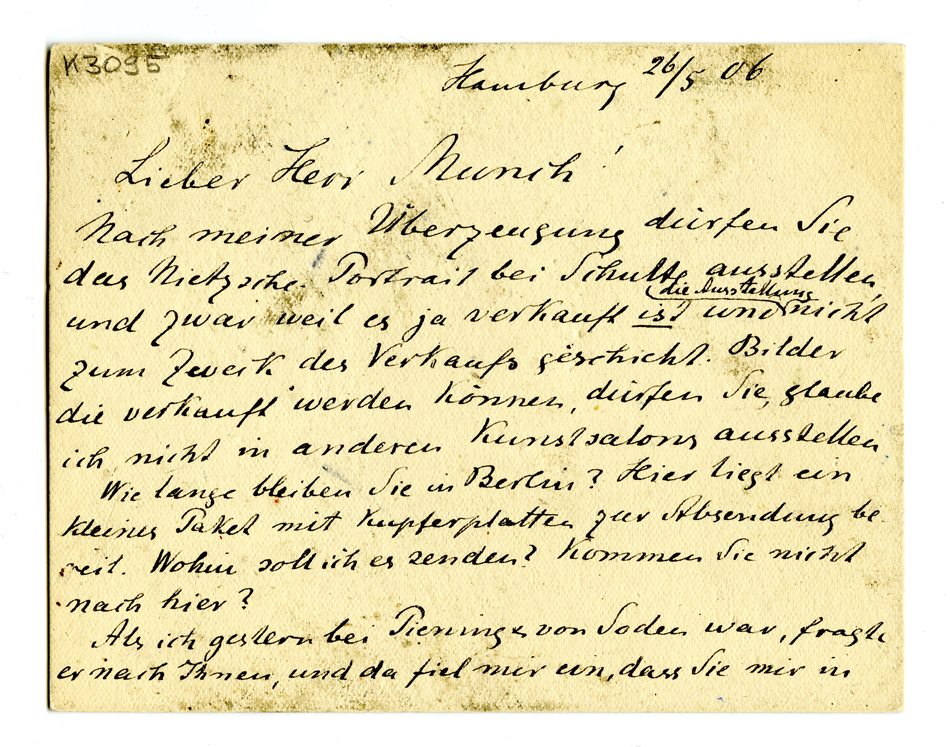 K3095
Hamburg 26/5 06
Lieber Herr Munch!
Nach meiner Überzeugung dürfen Sie
das Nietzsche-Portrait bei Schulte ausstellen,
und zwar weil es ja verkauft ist und die Ausstellung nicht
zum Zweck des Verkaufs geschieht. Bilder
die verkauft werden können, dürfen Sie, glaube
ich, nicht in anderen Kunstsalons ausstellen
Wie lange bleiben Sie in Berlin? Hier liegt ein
kleines Paket mit Kupferplatten zur Absendung be-
reit. Wohin soll ich es senden? Kommen Sie nicht
nach hier?
Als ich gestern bei von Soden war, fragte
er nach Ihnen, und da fiel mir ein, dass Sie mir in